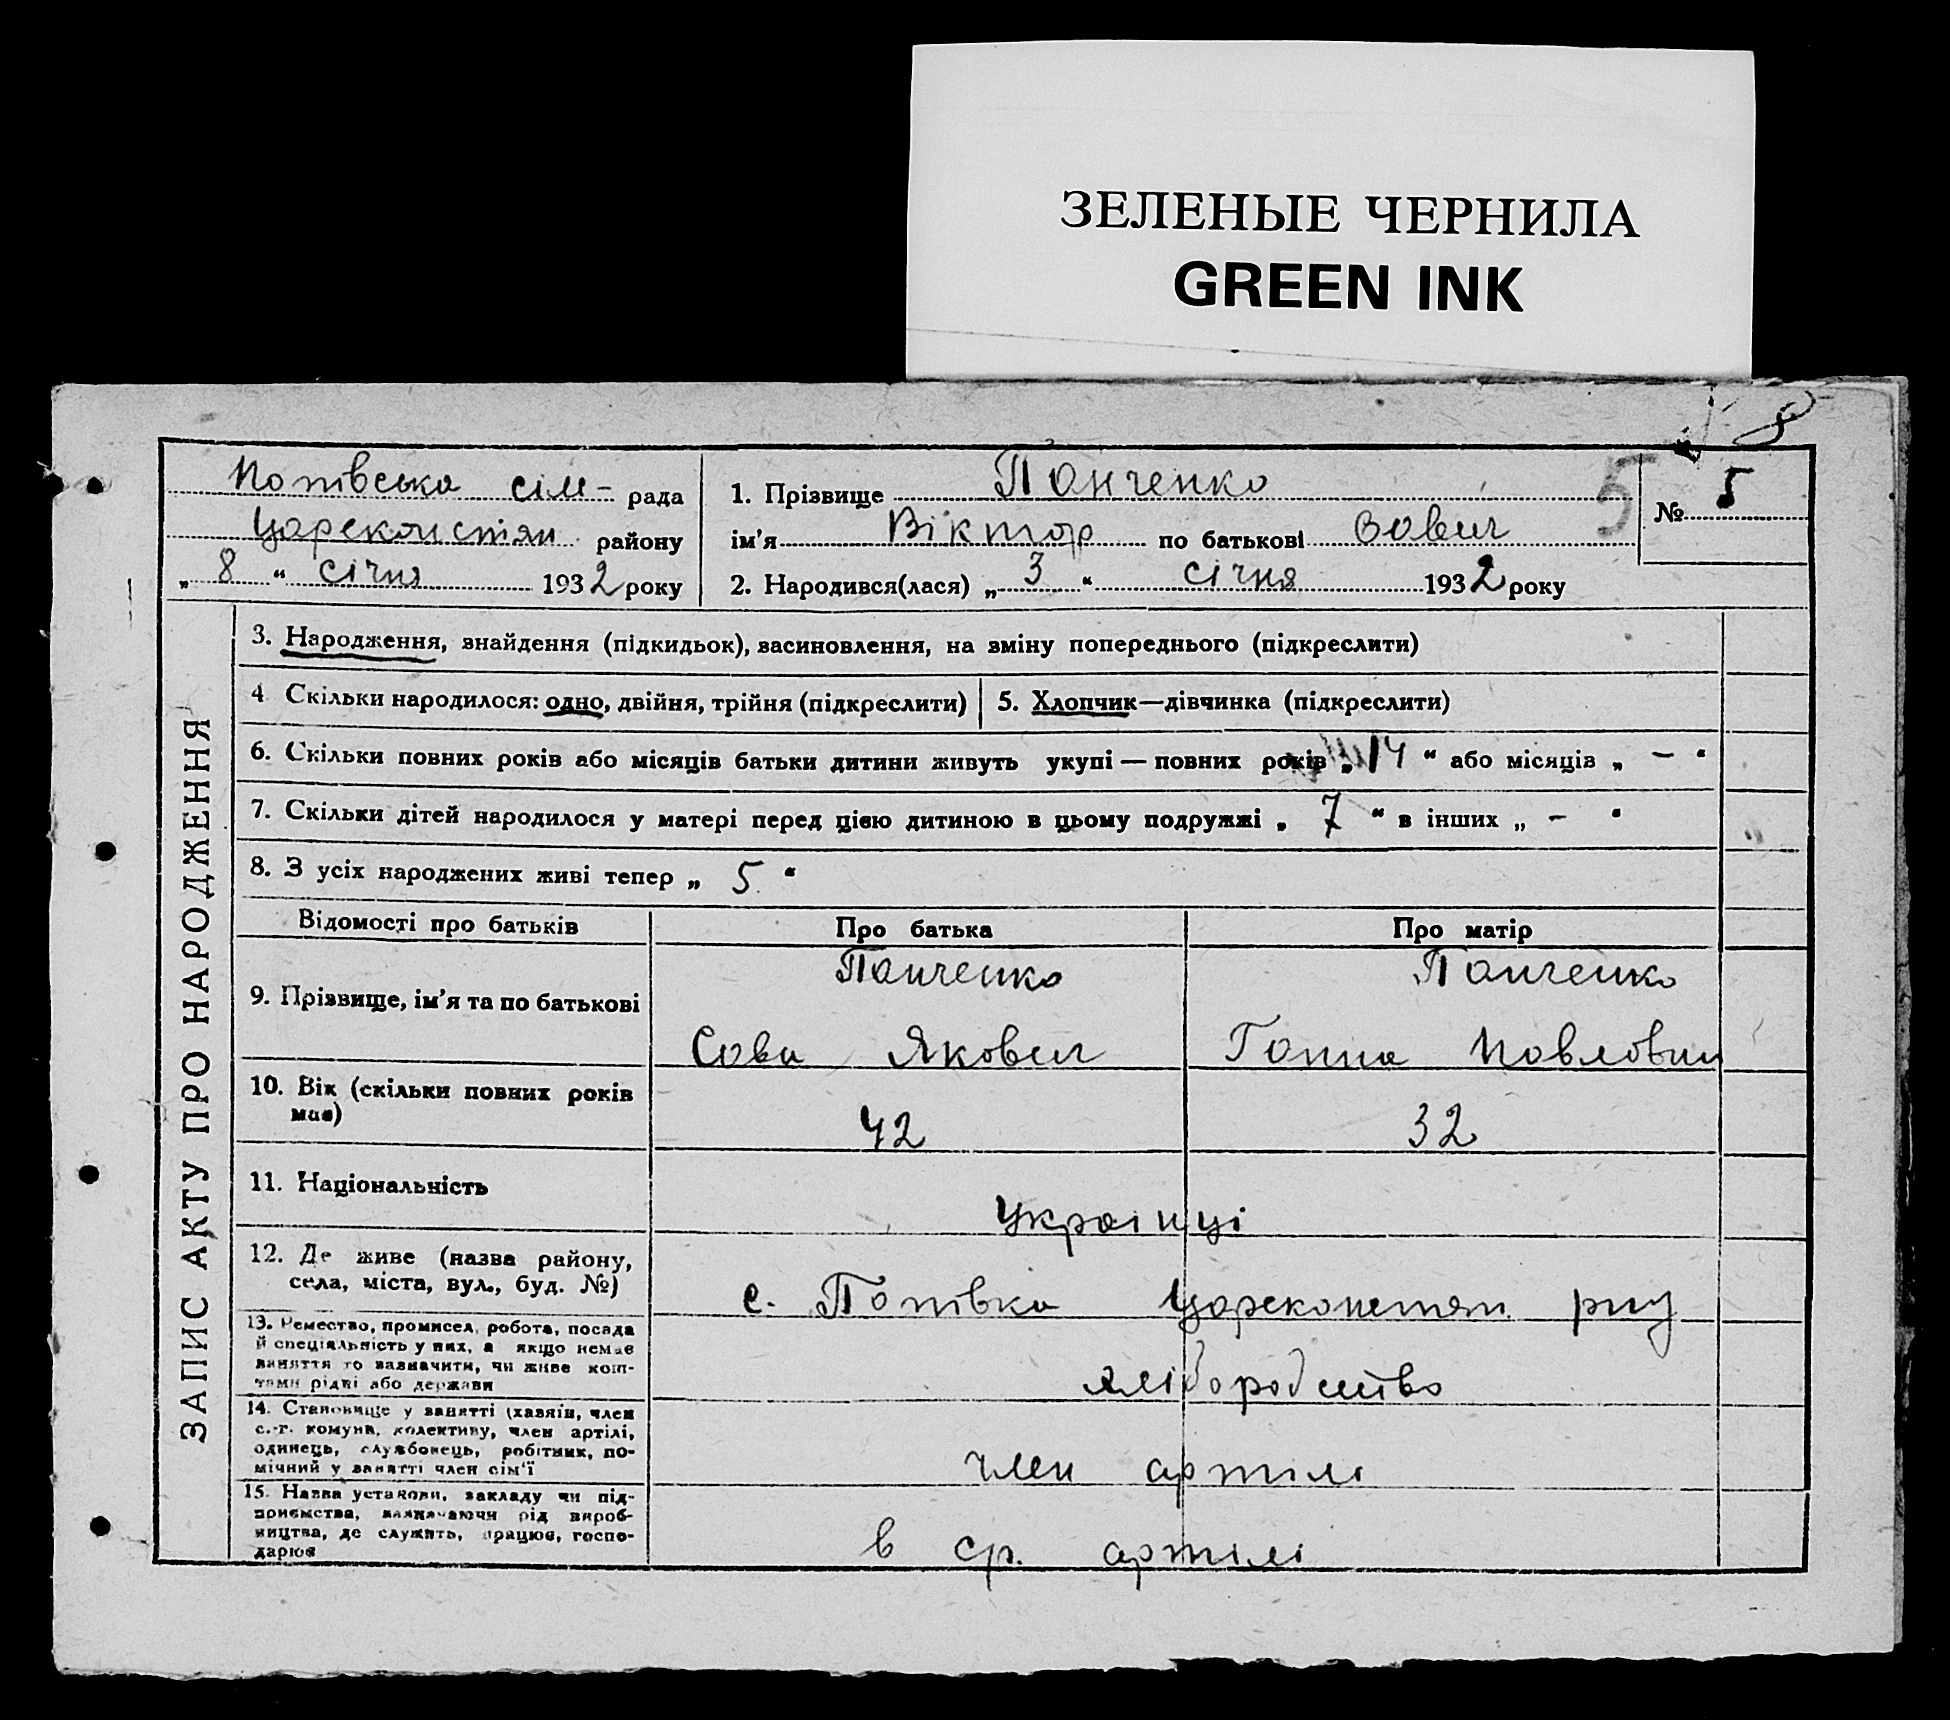 ЗЕЛЕНЫЕ ЧЕРНИЛА
GREEN INK
Попівська сіл- рада
Царекон район­у
„ 8 “ січня 1932 року
1. Прізвище Панченко
ім'я Віктор по батькові Вович
2. Народився(лася) „ 3 “ січня 1932 року
5
№ 5
ЗАПИС АКТУ ПРО НАРОДЖЕННЯ
3. Народження, знайдення (підкидьок), засиновлення, на зміну попереднього (підкреслити)
4 Скільки народилося: одно, двійня, трійня (підкреслити)
5. Хлопчик—дівчинка (підкреслити)
6. Скільки повних років або місяців батьки дитини живуть укупі — повних років „ 14 “ або місяців „ – “
7. Скільки дітей народилося у матері перед цією дитиною в цьому подружжі „ 7 “ в інших „ – “
8. З усіх народжених живі тепер „ 5 “
Відомості про батьків Про батька Про матір
9. Прізвище, ім'я та по батькові
Панченко
Сова Якович
Панченко
Ганна Павлівни
10. Вік (скільки повних років
має)
42 32
11. Національність
Українці
12. Де живе (назва району,
села, міста, вул., буд. №)
с. Попівка Цареконстян. рну
13. Ремество, промисел, робота, посада
й спеціяльність у них, а якщо немає
заняття то зазначити, чи живе кош-
тами рідні або держави
хліборобство
14. Становище у занятті (хазяїн, член
с.-г. комуни, колективу, член артілі,
одинець, службовець, робітник, по-
мічний у занятті член сім'ї
член артілі
15. Назва установи, закладу чи під-
приємства, зазначаючи рід вироб-
ництва, де служить, працює, госпо-
дарює
в ср. артілі